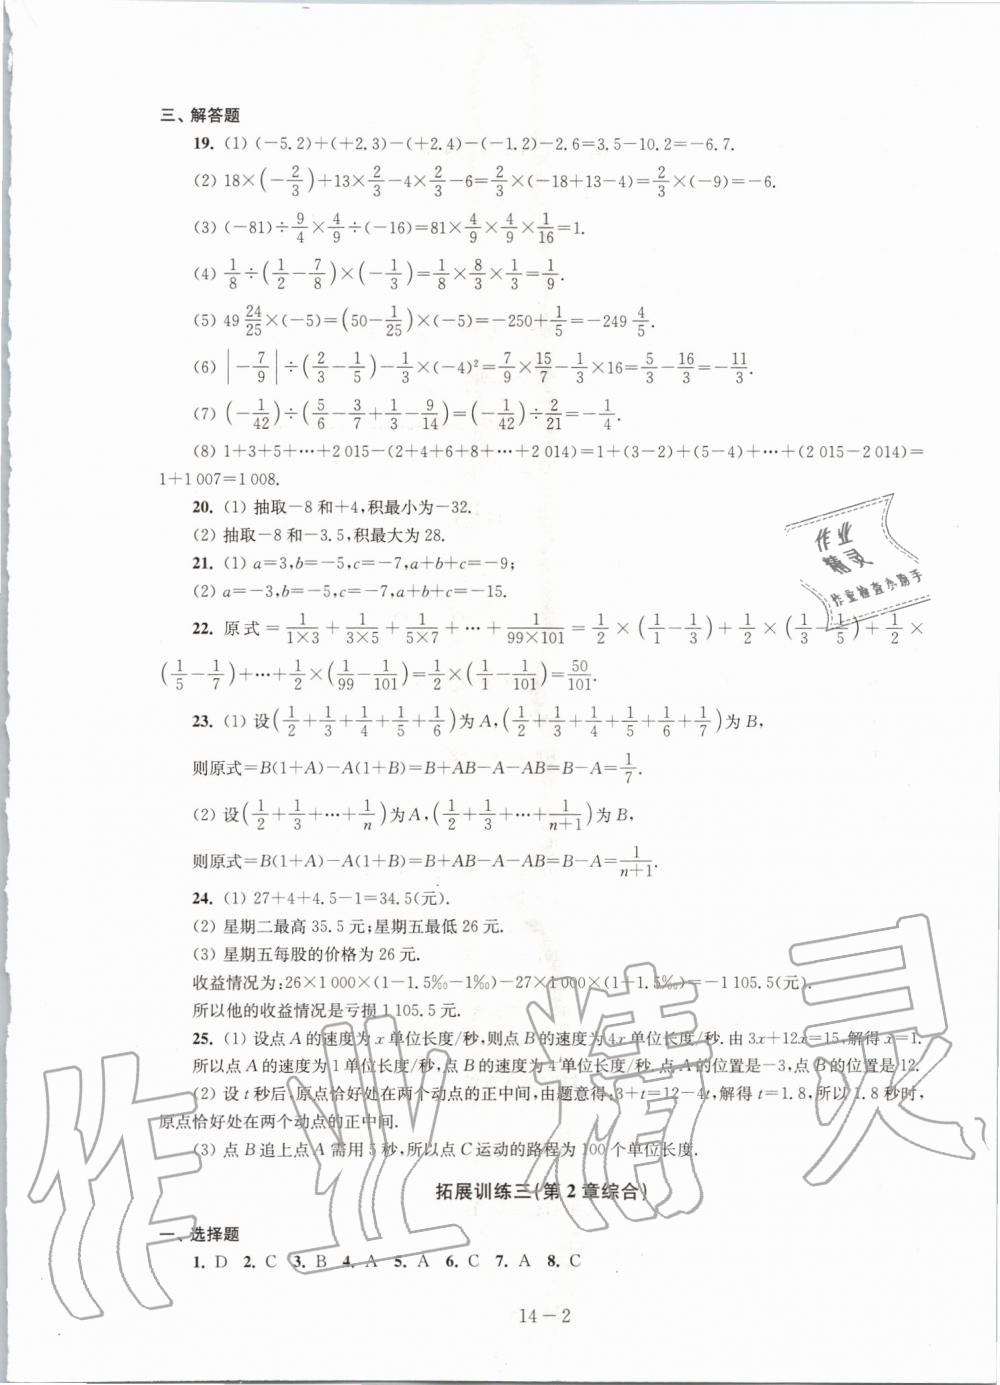 三、解答题
19. (1) (−5.2)+(+2.3)−(+2.4)−(−1.2)−2.6=3.5−10.2=−6.7.
(2) 18×(−2/3)+13×2/3−4×2/3−6=2/3×(−18+13−4)=2/3×(−9)=−6.
(3) (−81)÷9/4×4/9÷(−16)=81×4/9×4/9×1/16=1.
(4) 1/8÷(1/2−7/8)×(−1/3)=1/8×8/3×1/3=1/9.
(5) 49 24/25×(−5)=(50−1/25)×(−5)=−250+1/5=−249 4/5.
(6) |−7/9|÷(2/3−1/5)−1/3×(−4)²=7/9×15/7−1/3×16=5/3−16/3=−11/3.
(7) (−1/42)÷(5/6−3/7+1/3−9/14)=(−1/42)÷2/21=−1/4.
(8) 1+3+5+⋯+2 015−(2+4+6+8+⋯+2 014)=1+(3−2)+(5−4)+⋯+(2 015−2 014)=
1+1 007=1 008.
20. (1) 抽取−8和+4,积最小为−32.
(2) 抽取−8和−3.5,积最大为28.
21. (1) a=3,b=−5,c=−7,a+b+c=−9;
(2) a=−3,b=−5,c=−7,a+b+c=−15.
22. 原式=1/(1×3)+1/(3×5)+1/(5×7)+⋯+1/(99×101)=1/2×(1/1−1/3)+1/2×(1/3−1/5)+1/2×
(1/5−1/7)+⋯+1/2×(1/99−1/101)=1/2×(1/1−1/101)=50/101.
23. (1) 设(1/2+1/3+1/4+1/5+1/6)为A,(1/2+1/3+1/4+1/5+1/6+1/7)为B,
则原式=B(1+A)−A(1+B)=B+AB−A−AB=B−A=1/7.
(2) 设(1/2+1/3+⋯+1/n)为A,(1/2+1/3+⋯+1/(n+1))为B,
则原式=B(1+A)−A(1+B)=B+AB−A−AB=B−A=1/(n+1).
24. (1) 27+4+4.5−1=34.5(元).
(2) 星期二最高35.5元;星期五最低26元.
(3) 星期五每股的价格为26元.
收益情况为:26×1 000×(1−1.5‰−1‰)−27×1 000×(1+1.5‰)=−1 105.5(元).
所以他的收益情况是亏损1 105.5元.
25. (1) 设点A的速度为x单位长度/秒,则点B的速度为4x单位长度/秒.由3x+12x=15,解得x=1.
所以点A的速度为1单位长度/秒,点B的速度为4单位长度/秒.点A的位置是−3,点B的位置是12.
(2) 设t秒后,原点恰好处在两个动点的正中间,由题意得:3+t=12−4t,解得t=1.8,所以1.8秒时,
原点恰好处在两个动点的正中间.
(3) 点B追上点A需用5秒,所以点C运动的路程为100个单位长度.
拓展训练三(第2章综合)
一、选择题
1. D 2. C 3. B 4. A 5. A 6. C 7. A 8. C
14−2
作业
精灵
作业检查小助手
作业精灵